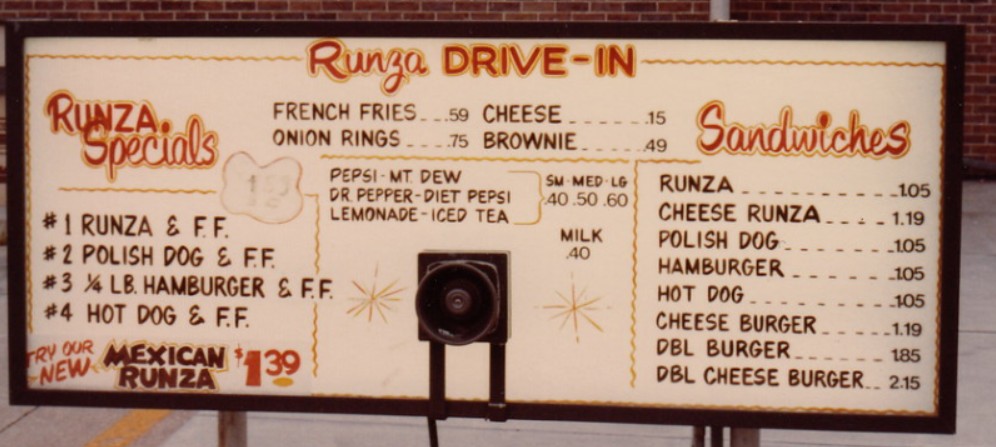 Runza DRIVE-IN
RUNZA
Specials
FRENCH FRIES .59 CHEESE .15
ONION RINGS .75 BROWNIE .49
Sandwiches
PEPSI - MT. DEW
DR. PEPPER - DIET PEPSI
LEMONADE - ICED TEA
SM - MED - LG
.40 .50 .60
MILK
.40
#1 RUNZA & F.F.
#2 POLISH DOG & F.F.
#3 ¼ LB. HAMBURGER & F.F.
#4 HOT DOG & F.F.
TRY OUR
NEW
MEXICAN
RUNZA
$1.39
RUNZA 1.05
CHEESE RUNZA 1.19
POLISH DOG 1.05
HAMBURGER 1.05
HOT DOG 1.05
CHEESE BURGER 1.19
DBL BURGER 1.85
DBL CHEESE BURGER 2.15